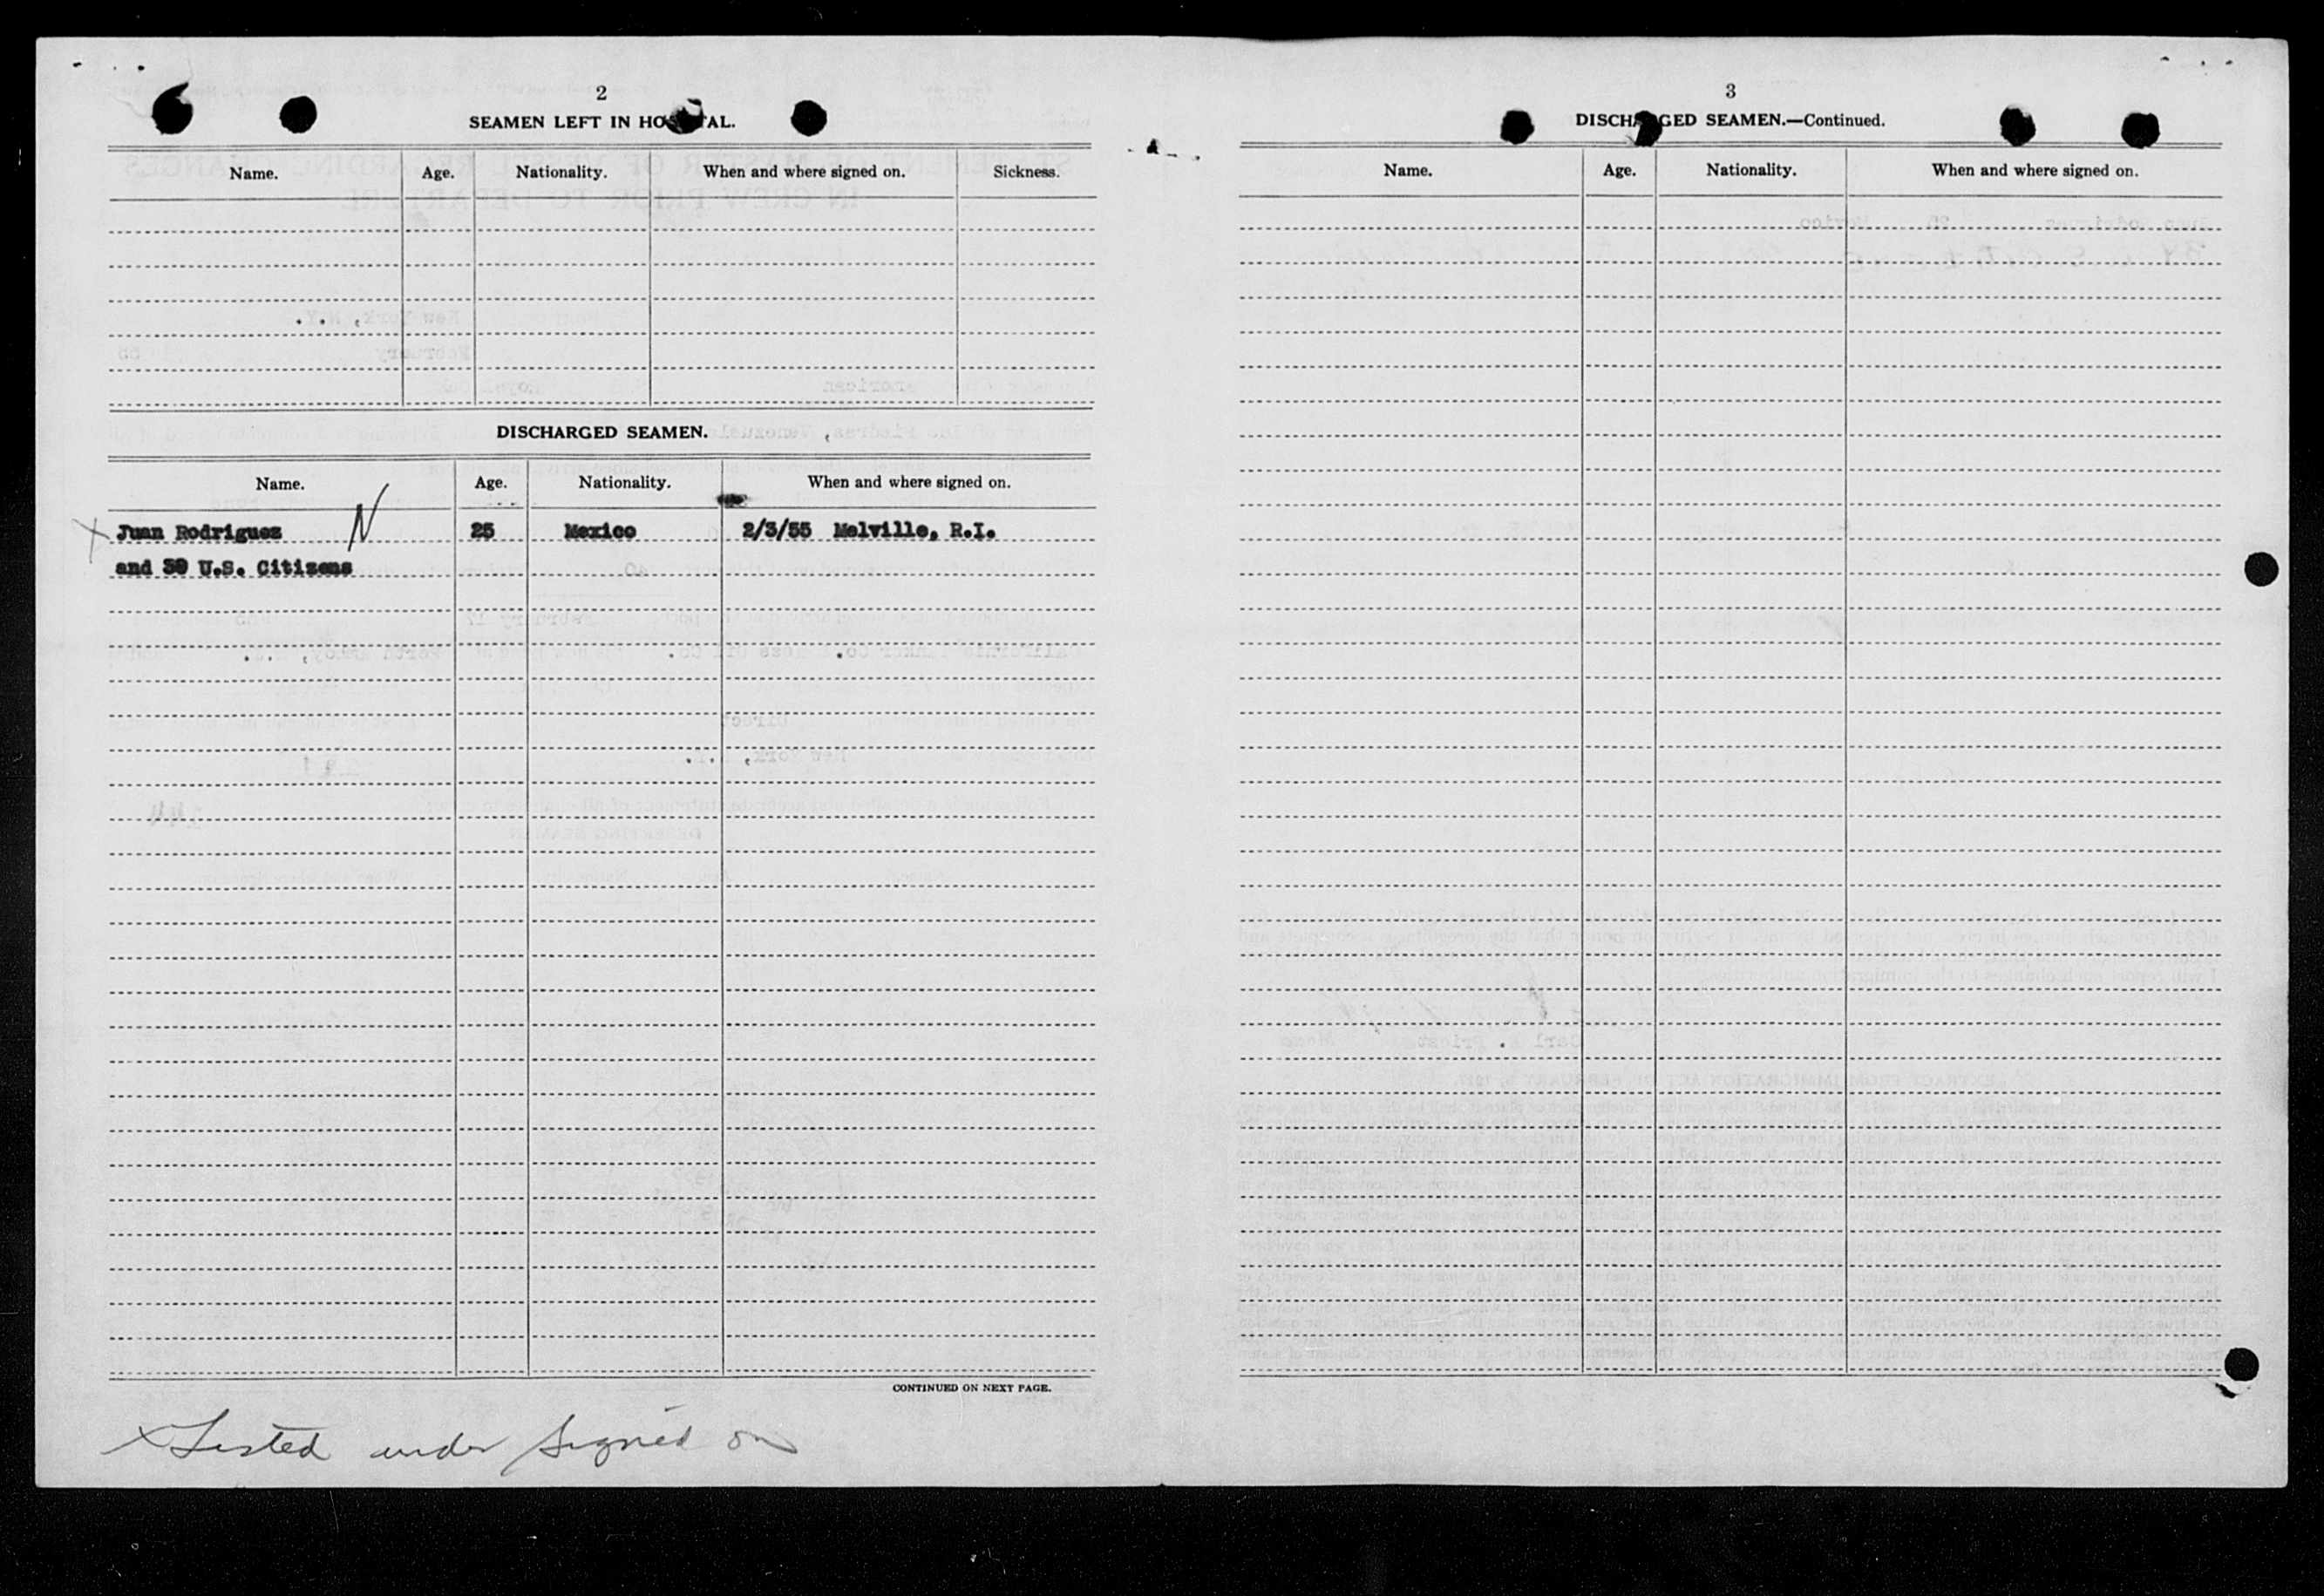 2
SEAMEN LEFT IN HOSPITAL.
Name. Age. Nationality. When and where signed on. Sickness.
DISCHARGED SEAMEN.
Name. Age. Nationality. When and where signed on.
x Juan Rodriguez N 25 Mexico 2/3/55 Melville, R.I.
and 39 U.S. Citizens
CONTINUED ON NEXT PAGE.
x Listed under signed on
3
DISCHARGED SEAMEN.—Continued.
Name. Age. Nationality. When and where signed on.